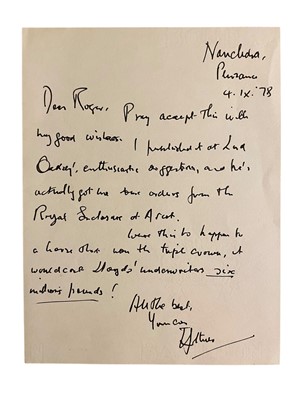 Nanchedra,
Penzance
4. IX. '78
Dear Roger, Pray accept this with
my good wishes. I published it at Lord
enthusiastic suggestion, and he's
actually got me some orders from the
Royal Enclosure at Ascot.
Were this to happen to
a horse that won the triple crown, it
would cost Lloyds' underwriters six
million pounds!
All the best,
Yours